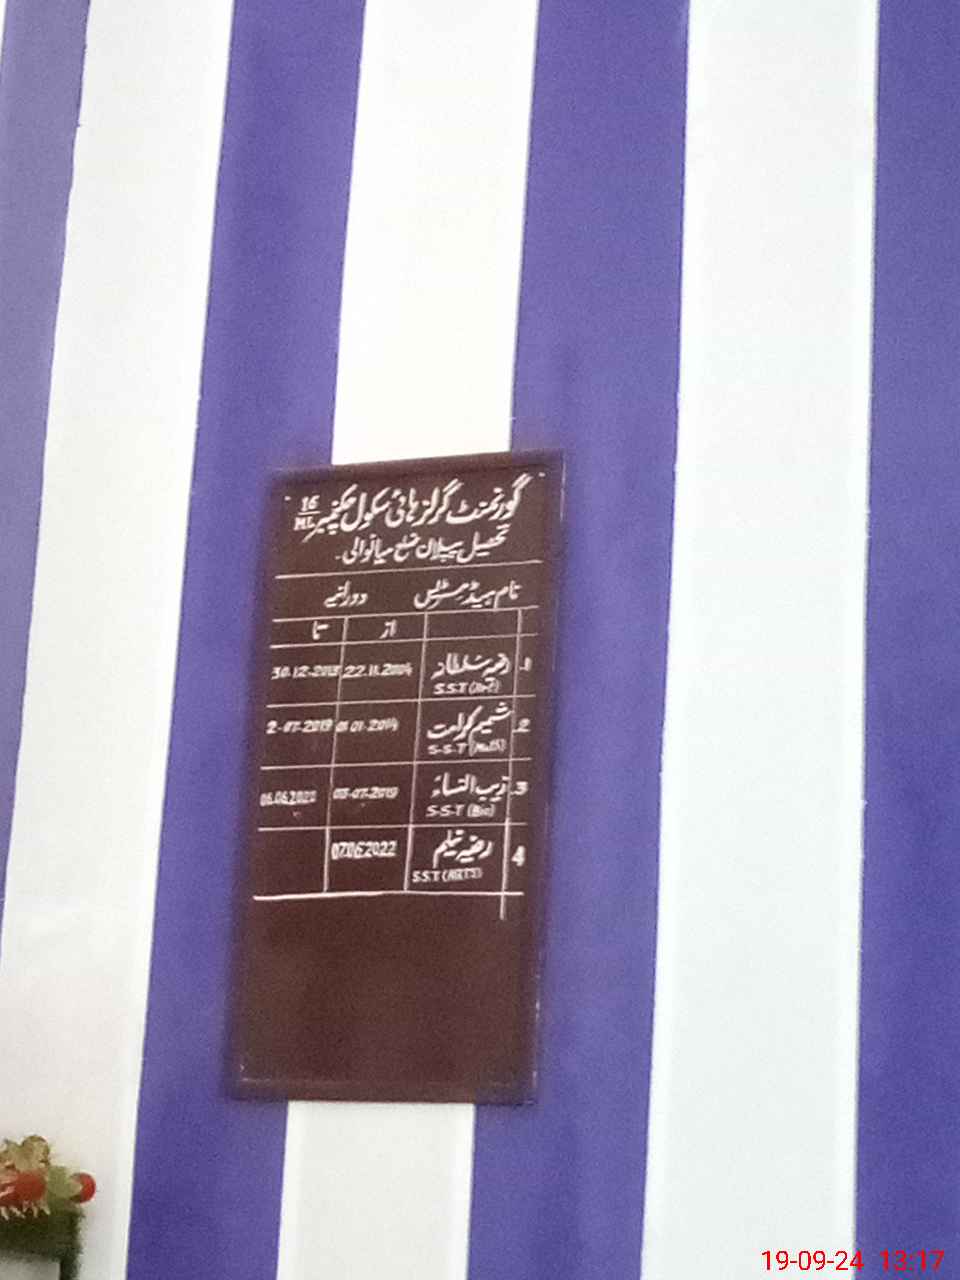 گورنمنٹ گرلز ہائی سکول چکنمبر 16/ML
تحصیل پپلاں ضلع میانوالی۔
نام ہیڈمسٹریس دورانیہ
از تا
1. رضیہ سلطانہ 22.11.2004 30.12.2013
S.S.T (Art)
2. شمیم کرامت 01.01.2014 2-07-2019
S-S-T (Math)
3. زیب النساء 03-07-2019 06.06.2022
S-S-T (Bio)
4 رضیہ نیلم 07.06.2022
S.S.T (ARTS)
19-09-24 13:17